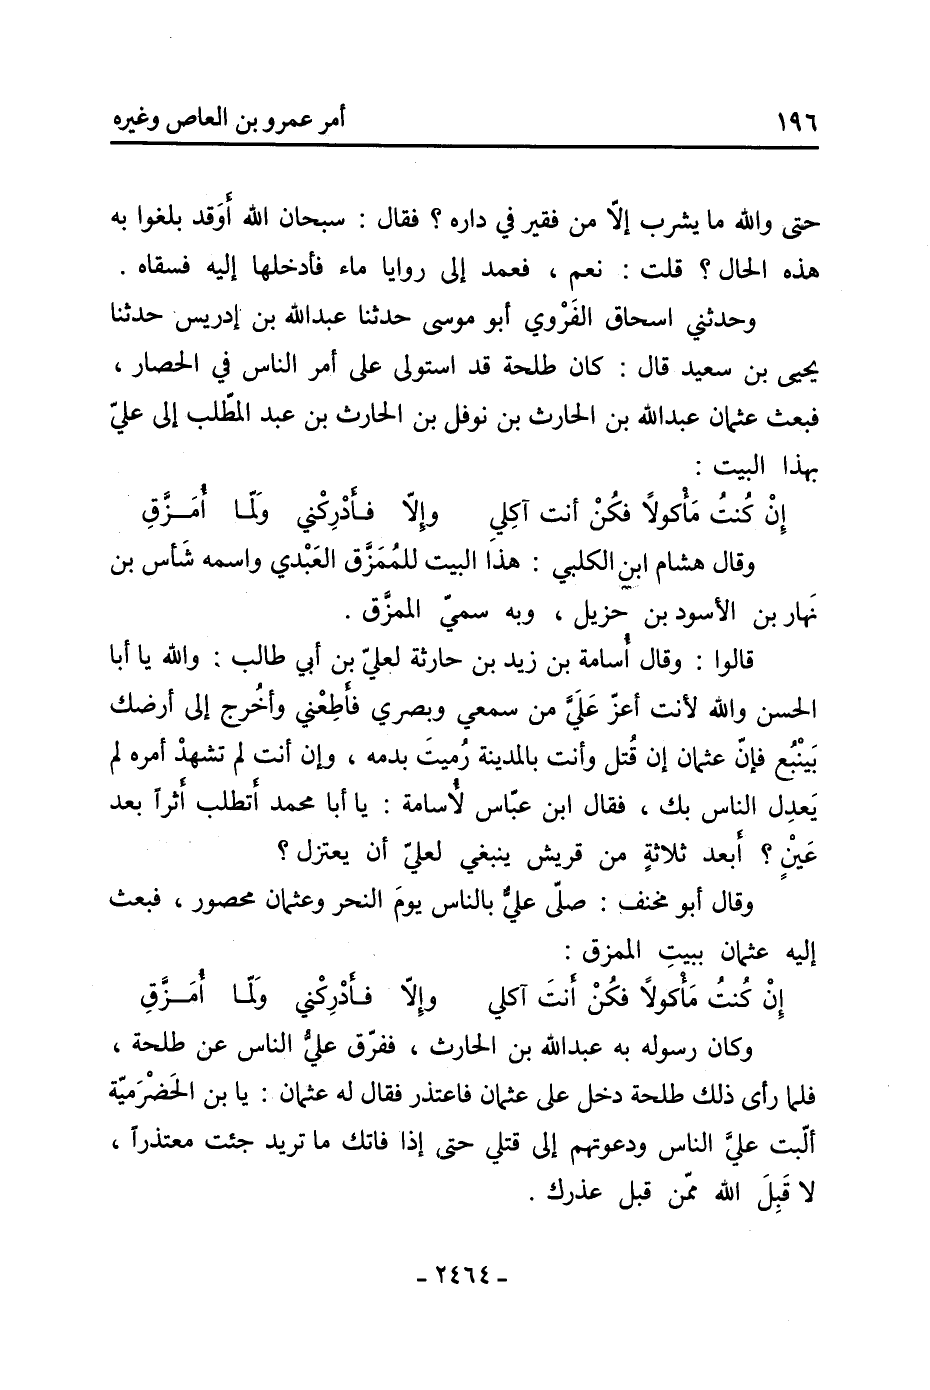 ١٩٦ أمر عمرو بن العاص وغيره
حتى والله ما يشرب إلّا من فقير في داره ؟ فقال : سبحان الله أَوَقد بلغوا به
هذه الحال ؟ قلت : نعم ، فعمد إلى روايا ماء فأدخلها إليه فسقاه .
وحدثني اسحاق الفَرْوي أبو موسى حدثنا عبدالله بن إدريس حدثنا
يحيى بن سعيد قال : كان طلحة قد استولى على أمر الناس في الحصار ،
فبعث عثمان عبدالله بن الحارث بن نوفل بن الحارث بن عبد المطّلب إلى عليّ
بهذا البيت :
إِنْ كُنتُ مَأْكولاً فكُنْ أنت آكِلي وإلّا فَأَدْرِكْني ولَمّا أُمَزَّقِ
وقال هشام ابن الكلبي : هذا البيت للمُمَزَّق العَبْدي واسمه شَأس بن
نَهار بن الأسود بن حزيل ، وبه سميّ الممزَّق .
قالوا : وقال أُسامة بن زيد بن حارثة لعليّ بن أبي طالب : والله يا أبا
الحسن والله لأنت أعزّ عَلَيَّ من سمعي وبصري فأَطِعْني وأخُرج إلى أرضك
بَيَنْبُع فإنّ عثمان إن قُتل وأنت بالمدينة رُميتَ بدمه ، وإن أنت لم تشهدْ أمره لم
يَعدِل الناس بك ، فقال ابن عبّاس لأُسامة : يا أبا محمد أَتطلب أَثراً بعد
عَيْنٍ ؟ أَبعد ثلاثةٍ من قريش ينبغي لعليّ أن يعتزل ؟
وقال أبو مخنف : صلّى عليٌّ بالناس يومَ النحر وعثمان محصور ، فبعث
إليه عثمان ببيتِ الممزق :
إِنْ كُنتُ مَأْكولاً فكُنْ أَنتَ آكلي وإلّا فَأَدْرِكْني ولَمّا أُمَزَّقِ
وكان رسوله به عبدالله بن الحارث ، ففرّق عليٌّ الناس عن طلحة ،
فلما رأى ذلك طلحة دخل على عثمان فاعتذر فقال له عثمان : يا بن الحَضْرَميّة
ألّبت عليَّ الناس ودعوتهم إلى قتلي حتى إذا فاتك ما تريد جئت معتذراً ،
لا قَبِلَ الله ممّن قبل عذرك .
- ٢٤٦٤ -